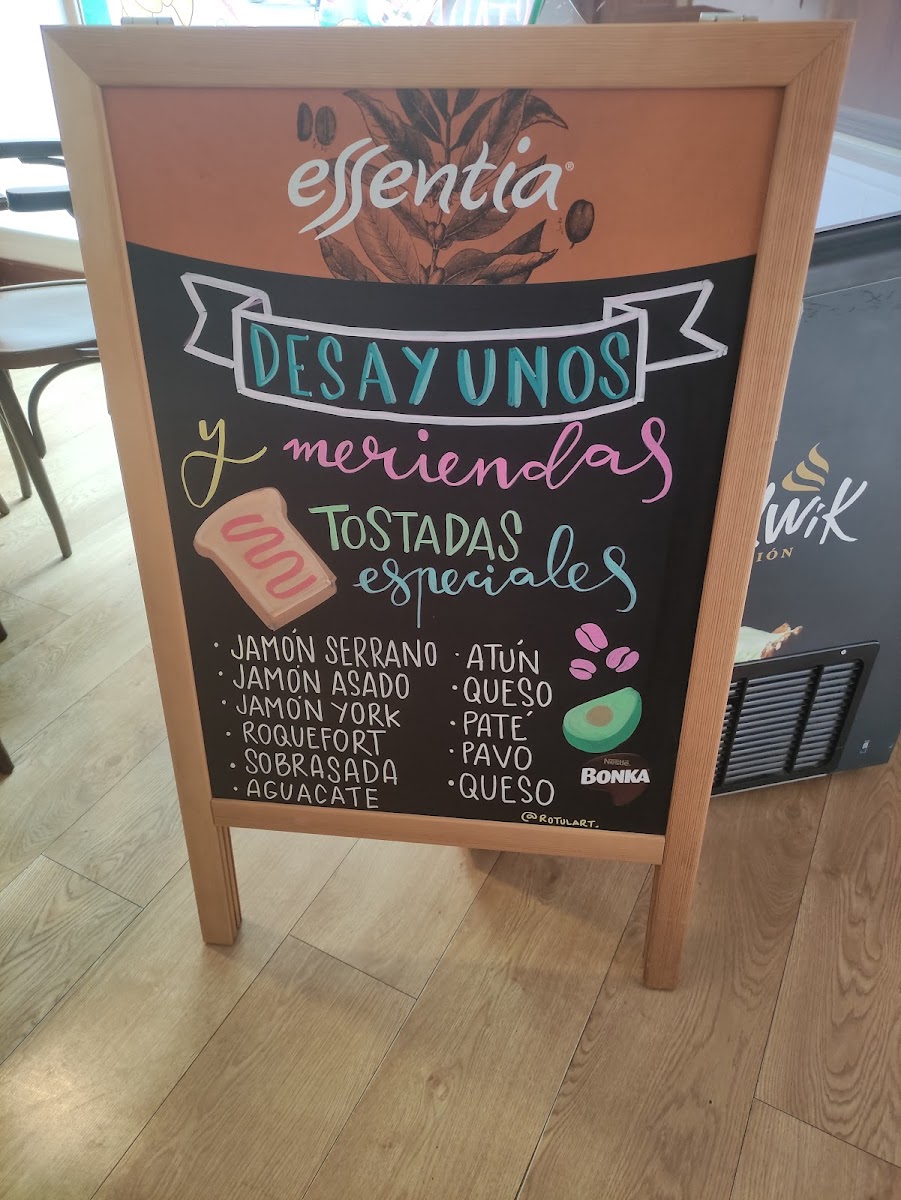 essentia®
DESAYUNOS
y meriendas
TOSTADAS
especiales
· JAMÓN SERRANO
· JAMÓN ASADO
· JAMÓN YORK
· ROQUEFORT
· SOBRASADA
· AGUACATE
· ATÚN
· QUESO
· PATÉ
· PAVO
· QUESO
Nestlé
BONKA
@ROTULART.